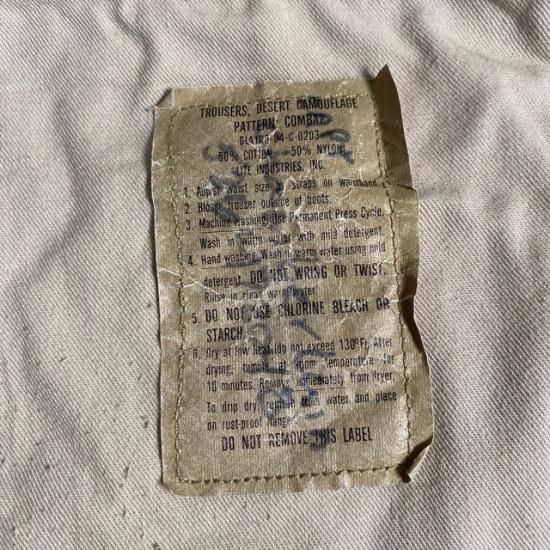 TROUSERS, DESERT CAMOUFLAGE
PATTERN: COMBAT
DLA100-84-C-0203
50% COTTON 50% NYLON
LITE INDUSTRIES, INC.
1. Adjust waist size by straps on waistband.
2. Blouse trouser outside of boots.
3. Machine washing: Use Permanent Press Cycle.
Wash in warm water with mild detergent.
4. Hand washing: Wash in warm water using mild
detergent. DO NOT WRING OR TWIST.
Rinse in clean warm water.
5. DO NOT USE CHLORINE BLEACH OR
STARCH.
6. Dry at low heat (do not exceed 130°F). After
drying, tumble at room temperature for
10 minutes. Remove immediately from dryer.
To drip dry, remove from water and place
on rust-proof hanger.
DO NOT REMOVE THIS LABEL